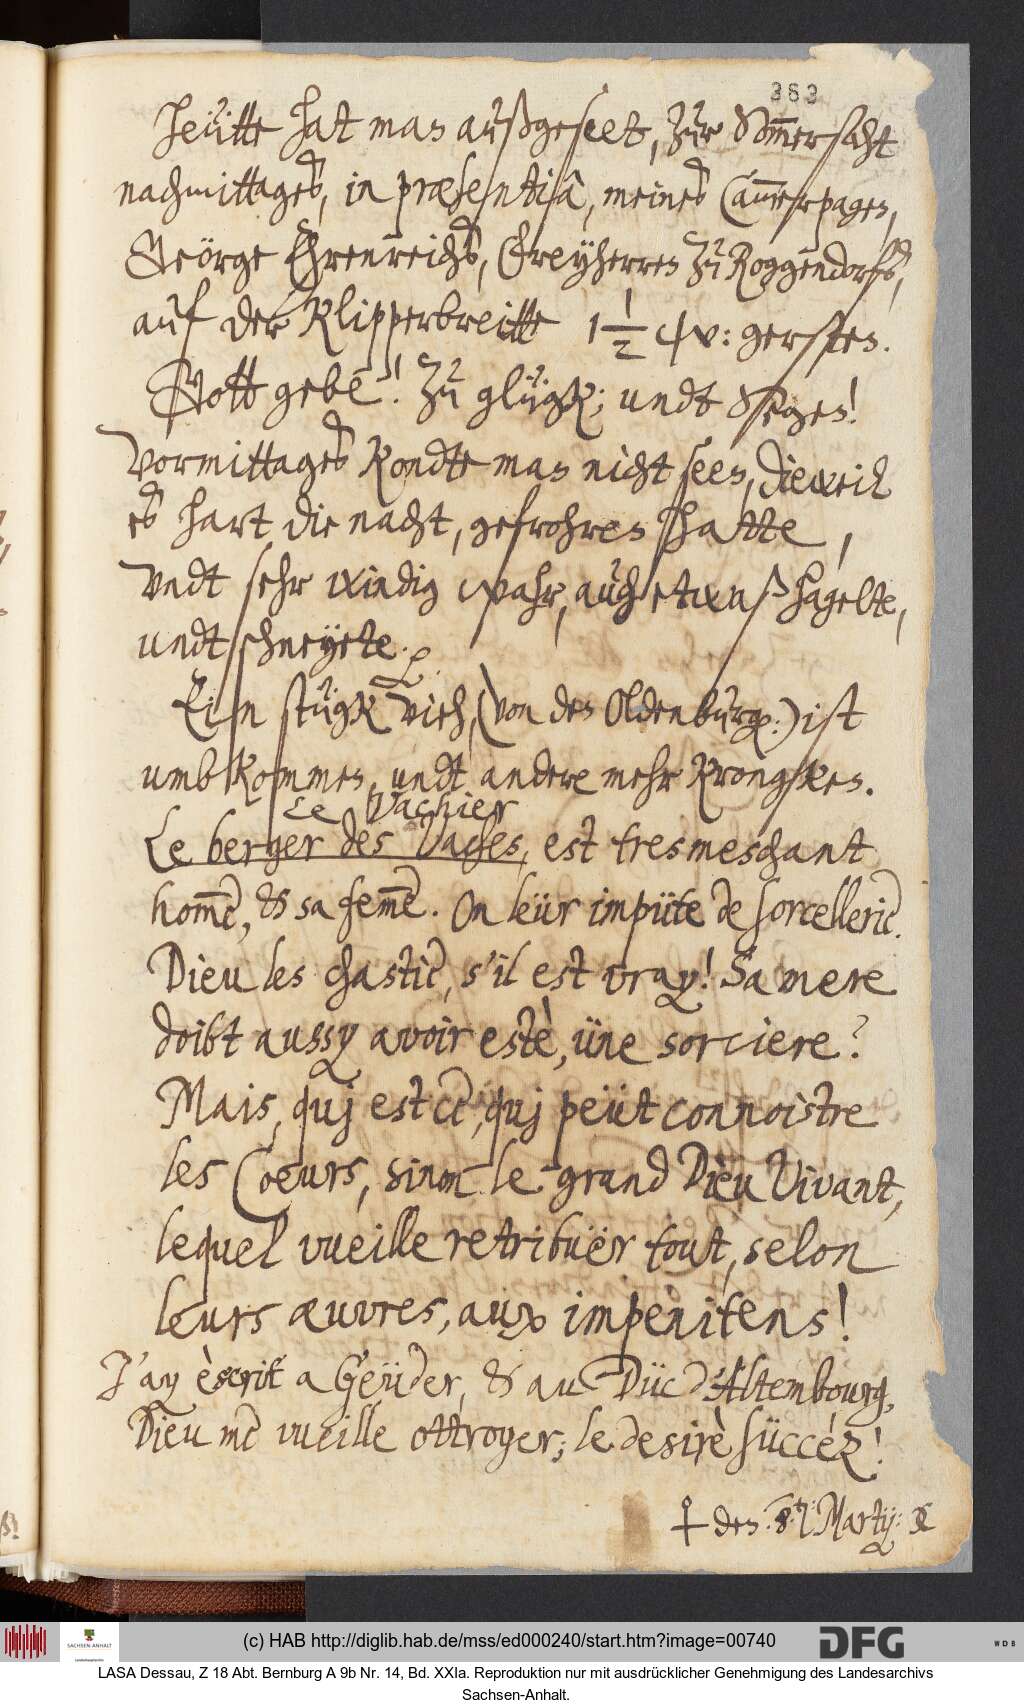 383
Heütte hat man außgeseet, zur Som̅ersaht
nachmittages, in præsentiâ, meines Cam̅erpagen,
Geörge Ehrenreichs, Freyherren zu Roggendorfs,
auf der Klipperbreitte 1 1/2 w: gersten.
Gott gebe! zu glück; undt Segen!
Vormittages kondte man nicht seen, dieweil
es hart die nacht, gefrohren hatte,
Vndt sehr windig wahr, auch etwaß hagelte,
undt schneyete. 
Ein stück vieh, (von den Oldenburg:) ist
umbkommen, undt andere mehr krencken.
Le Vachier
Le berger des Vaches, est tresmeschant
hom̅e, & sa fem̅e. On leür impüte de sorcellerie.
Dieu les chastie, s'il est vray! Sa mere
doibt aussy avoir estè, üne sorciere?
Mais, quj est ce, quj peüt connoistre
les Cœurs, sinon le grand Dieu Vivant,
lequel vueille retribuër tout, selon
leurs œuvres, aux impenitens!
J'ay èscrit a Geüder, & au Düc d'Altembourg,
Dieu me vueille ottroyer; le desirè süccéz!
♀ den. 8.ten: Martij:
(c) HAB http://diglib.hab.de/mss/ed000240/start.htm?image=00740
SACHSEN-ANHALT
DFG
WDB
LASA Dessau, Z 18 Abt. Bernburg A 9b Nr. 14, Bd. XXIa. Reproduktion nur mit ausdrücklicher Genehmigung des Landesarchivs
Sachsen-Anhalt.